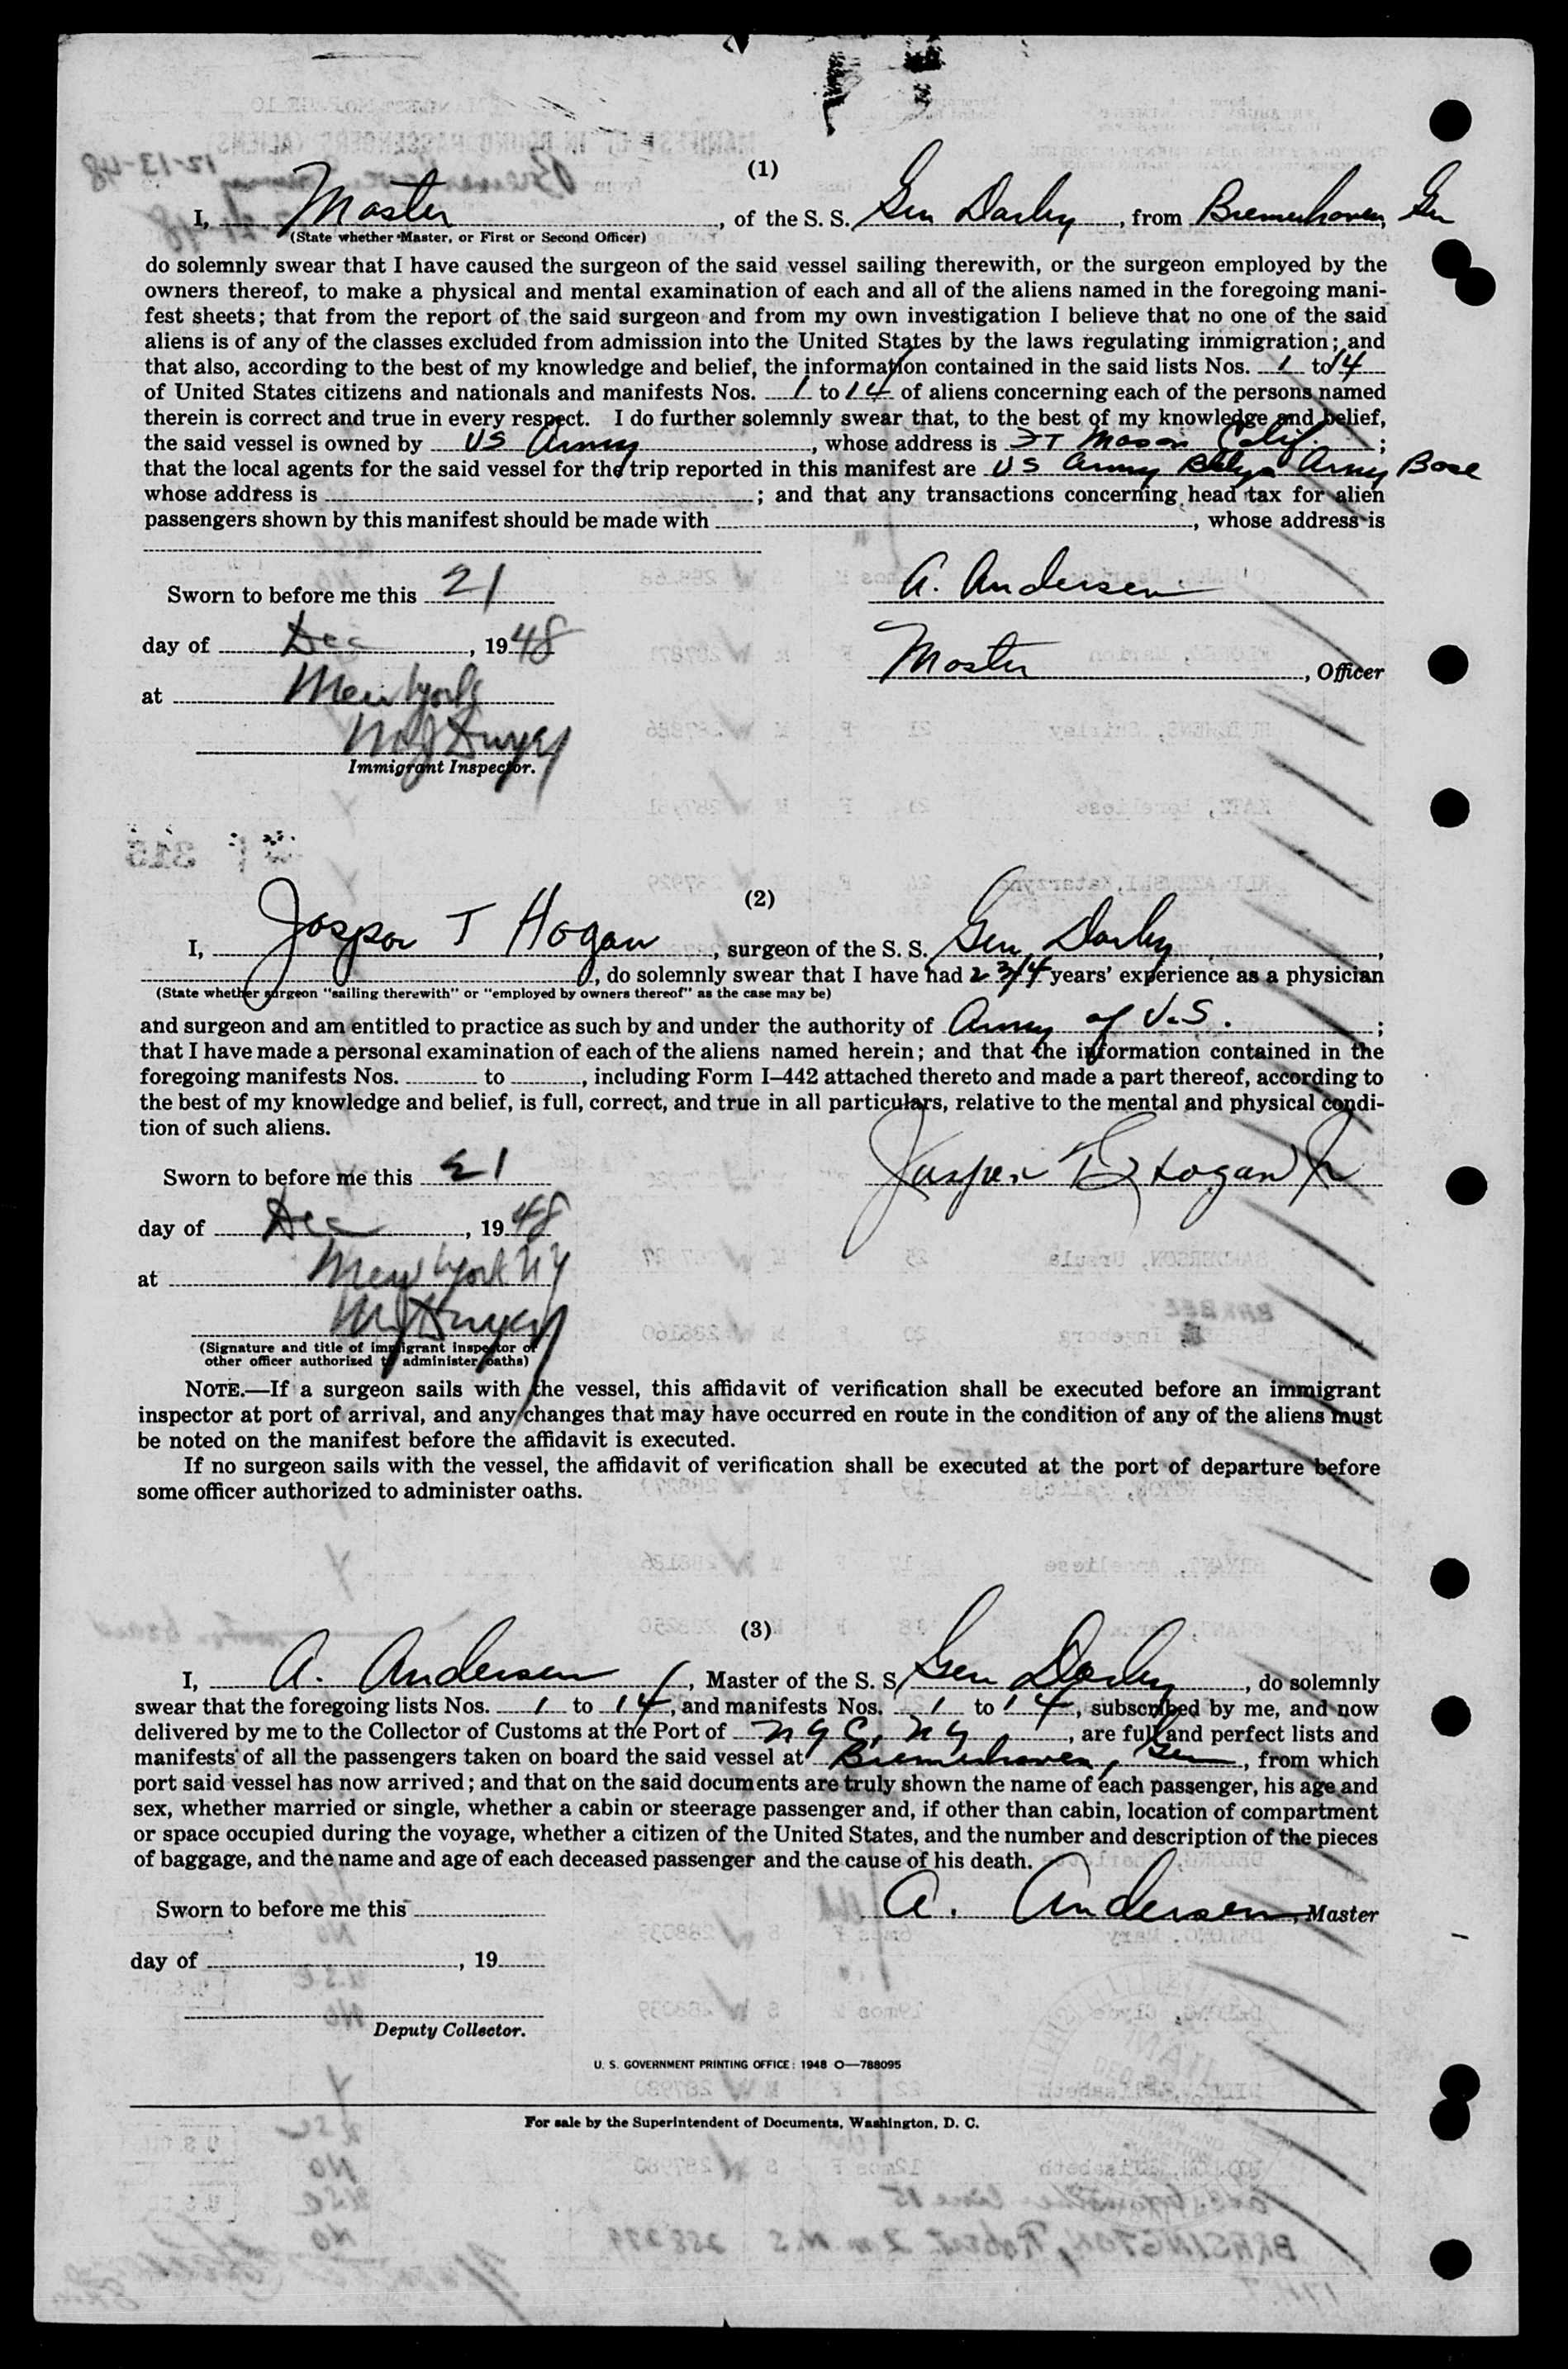 (1)
I, Master, of the S. S. Gen Darby, from Bremerhaven, Ger
(State whether Master, or First or Second Officer)
do solemnly swear that I have caused the surgeon of the said vessel sailing therewith, or the surgeon employed by the
owners thereof, to make a physical and mental examination of each and all of the aliens named in the foregoing mani-
fest sheets; that from the report of the said surgeon and from my own investigation I believe that no one of the said
aliens is of any of the classes excluded from admission into the United States by the laws regulating immigration; and
that also, according to the best of my knowledge and belief, the information contained in the said lists Nos. 1 to 14
of United States citizens and nationals and manifests Nos. 1 to 14 of aliens concerning each of the persons named
therein is correct and true in every respect. I do further solemnly swear that, to the best of my knowledge and belief,
the said vessel is owned by US Army, whose address is FT Mason Calif. ;
that the local agents for the said vessel for the trip reported in this manifest are US Army Bklyn Army Base
whose address is ; and that any transactions concerning head tax for alien
passengers shown by this manifest should be made with , whose address is
Sworn to before me this 21
A. Andersen
day of Dec, 1948
Master, Officer
at New York
Immigrant Inspector.
(2)
I, Jasper T Hogan, surgeon of the S. S. Gen Darby,
, do solemnly swear that I have had 2 3/4 years' experience as a physician
(State whether surgeon "sailing therewith" or "employed by owners thereof" as the case may be)
and surgeon and am entitled to practice as such by and under the authority of Army of U.S. ;
that I have made a personal examination of each of the aliens named herein; and that the information contained in the
foregoing manifests Nos. to , including Form I–442 attached thereto and made a part thereof, according to
the best of my knowledge and belief, is full, correct, and true in all particulars, relative to the mental and physical condi-
tion of such aliens.
Sworn to before me this 21
Jasper T Hogan Jr
day of Dec, 1948
at New York NY
(Signature and title of immigrant inspector or
other officer authorized to administer oaths)
NOTE.—If a surgeon sails with the vessel, this affidavit of verification shall be executed before an immigrant
inspector at port of arrival, and any changes that may have occurred en route in the condition of any of the aliens must
be noted on the manifest before the affidavit is executed.
If no surgeon sails with the vessel, the affidavit of verification shall be executed at the port of departure before
some officer authorized to administer oaths.
(3)
I, A. Andersen, Master of the S. S. Gen Darby, do solemnly
swear that the foregoing lists Nos. 1 to 14, and manifests Nos. 1 to 14, subscribed by me, and now
delivered by me to the Collector of Customs at the Port of N Y C, N Y, are full and perfect lists and
manifests of all the passengers taken on board the said vessel at Bremerhaven, Ger, from which
port said vessel has now arrived; and that on the said documents are truly shown the name of each passenger, his age and
sex, whether married or single, whether a cabin or steerage passenger and, if other than cabin, location of compartment
or space occupied during the voyage, whether a citizen of the United States, and the number and description of the pieces
of baggage, and the name and age of each deceased passenger and the cause of his death.
Sworn to before me this
A. Andersen, Master
day of , 19
Deputy Collector.
U. S. GOVERNMENT PRINTING OFFICE: 1948 O—788095
For sale by the Superintendent of Documents, Washington, D. C.